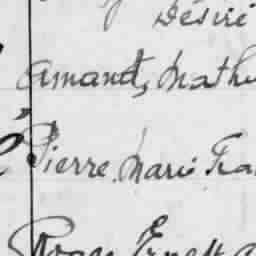 Désiré
Amand, Mathu
Pierre Marie Fra
Ernest